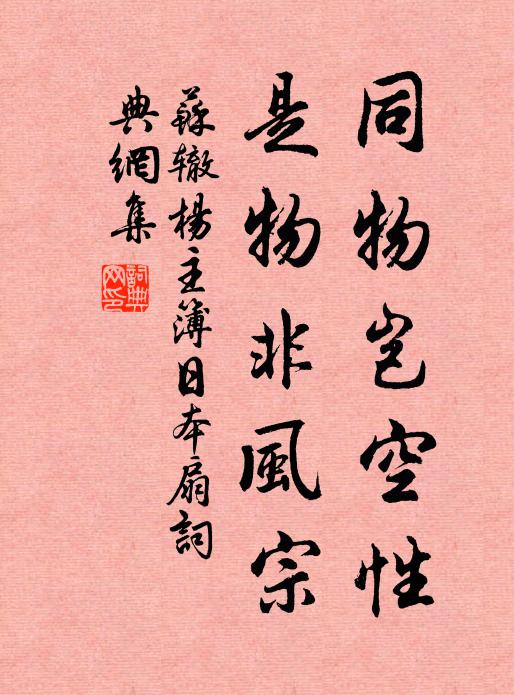 同物岂空性
是物非風宗
蘇辙楊主簿日本扇詞
典網集
詞典网印